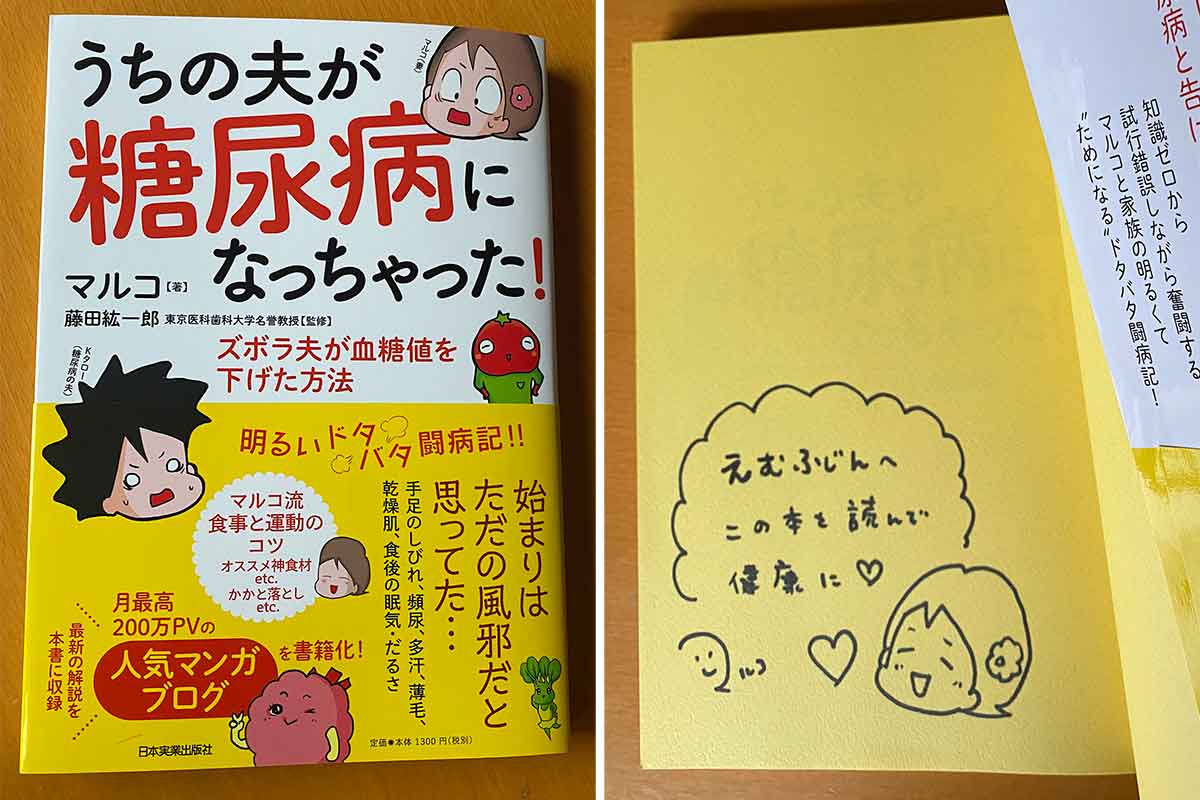 うちの夫が
糖尿病に
なっちゃった!
マルコ(妻)
マルコ【著】
藤田紘一郎 東京医科歯科大学名誉教授【監修】
Kタロー
(糖尿病の夫)
ズボラ夫が血糖値を
下げた方法
明るいドタバタ闘病記!!
始まりは
ただの風邪だと
思ってた…
手足のしびれ、頻尿、多汗、薄毛、
乾燥肌、食後の眠気・だるさ
マルコ流
食事と運動の
コツ
オススメ神食材
etc.
かかと落とし
etc.
月最高
200万PVの
人気マンガ
ブログ
を書籍化!
最新の解説を
本書に収録
定価●本体1300円(税別)
日本実業出版社
病と告げ
知識ゼロから
試行錯誤しながら奮闘する
マルコと家族の明るくて
“ためになる”ドタバタ闘病記!
えむふじんへ
この本を読んで
健康に♡
マルコ